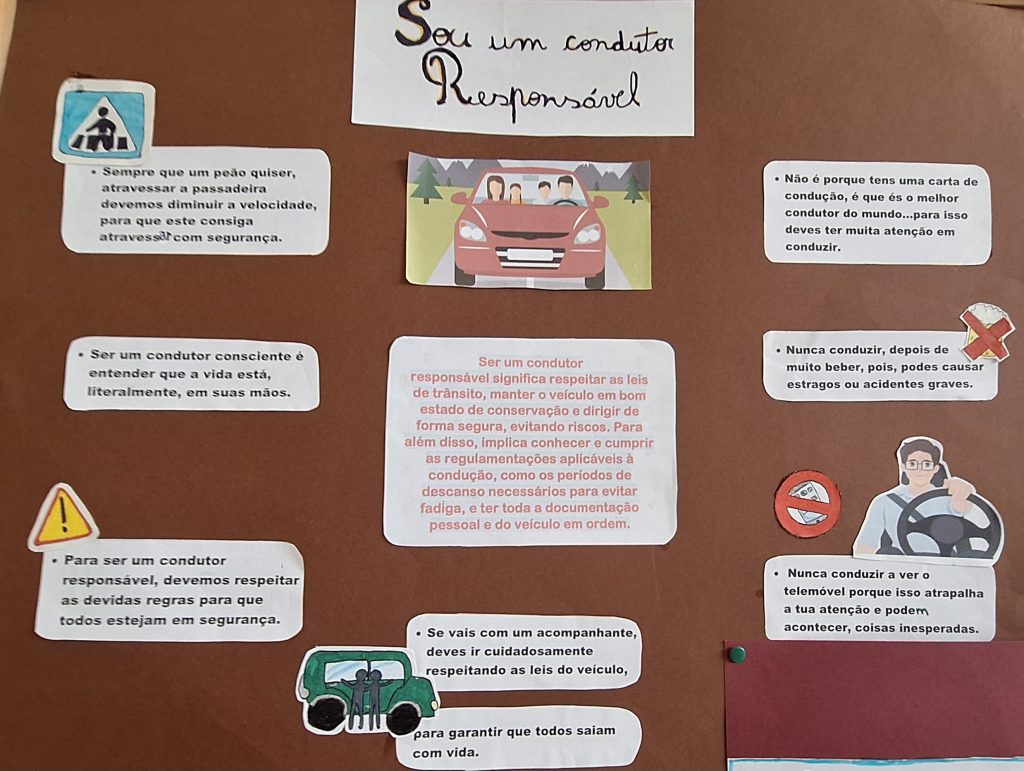 Sou um condutor
Responsável
• Sempre que um peão quiser,
atravessar a passadeira
devemos diminuir a velocidade,
para que este consiga
atravessar com segurança.
• Ser um condutor consciente é
entender que a vida está,
literalmente, em suas mãos.
• Para ser um condutor
responsável, devemos respeitar
as devidas regras para que
todos estejam em segurança.
Ser um condutor
responsável significa respeitar as leis
de trânsito, manter o veículo em bom
estado de conservação e dirigir de
forma segura, evitando riscos. Para
além disso, implica conhecer e cumprir
as regulamentações aplicáveis à
condução, como os períodos de
descanso necessários para evitar
fadiga, e ter toda a documentação
pessoal e do veículo em ordem.
• Se vais com um acompanhante,
deves ir cuidadosamente
respeitando as leis do veículo,
para garantir que todos saiam
com vida.
• Não é porque tens uma carta de
condução, é que és o melhor
condutor do mundo...para isso
deves ter muita atenção em
conduzir.
• Nunca conduzir, depois de
muito beber, pois, podes causar
estragos ou acidentes graves.
• Nunca conduzir a ver o
telemóvel porque isso atrapalha
a tua atenção e podem
acontecer, coisas inesperadas.